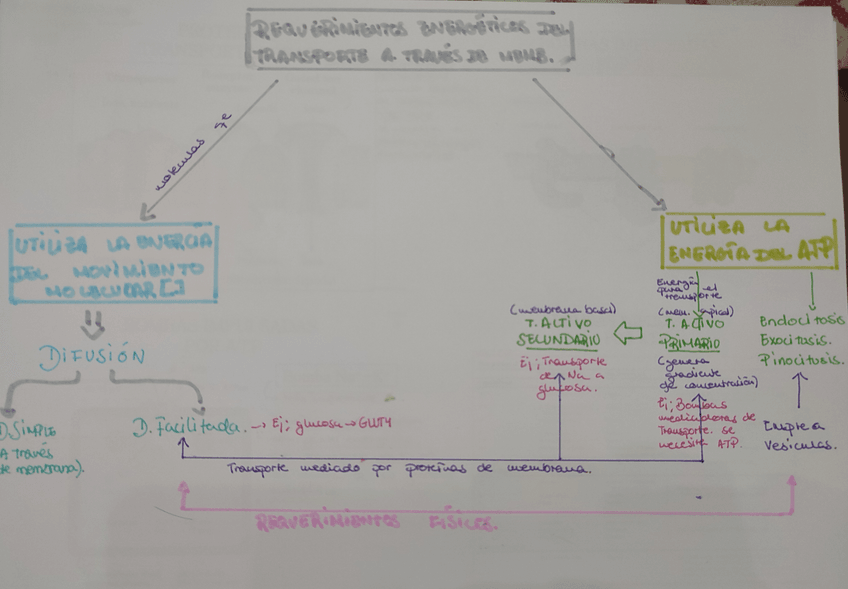 REQUERIMIENTOS ENERGÉTICOS DEL
TRANSPORTE A TRAVÉS DE MEMB.
moléculas
UTILIZA LA ENERGÍA
DEL MOVIMIENTO
MOLECULAR []
DIFUSIÓN
D. SIMPLE
(A través
de membrana).
D. Facilitada. → Ej; glucosa → GLUT4
UTILIZA LA
ENERGÍA DEL ATP
Energía
para el
transporte
(mem. apical)
T. ACTIVO
PRIMARIO
(genera
gradiente
de concentración)
Ej; Bombas
mediadoras de
Transporte. se
necesita ATP.
(membrana basal)
T. ACTIVO
SECUNDARIO
Ej; Transporte
de Na a
glucosa.
Endocitosis
Exocitosis.
Pinocitosis.
Emplea
vesículas.
Transporte mediado por proteínas de membrana.
REQUERIMIENTOS FÍSICOS.